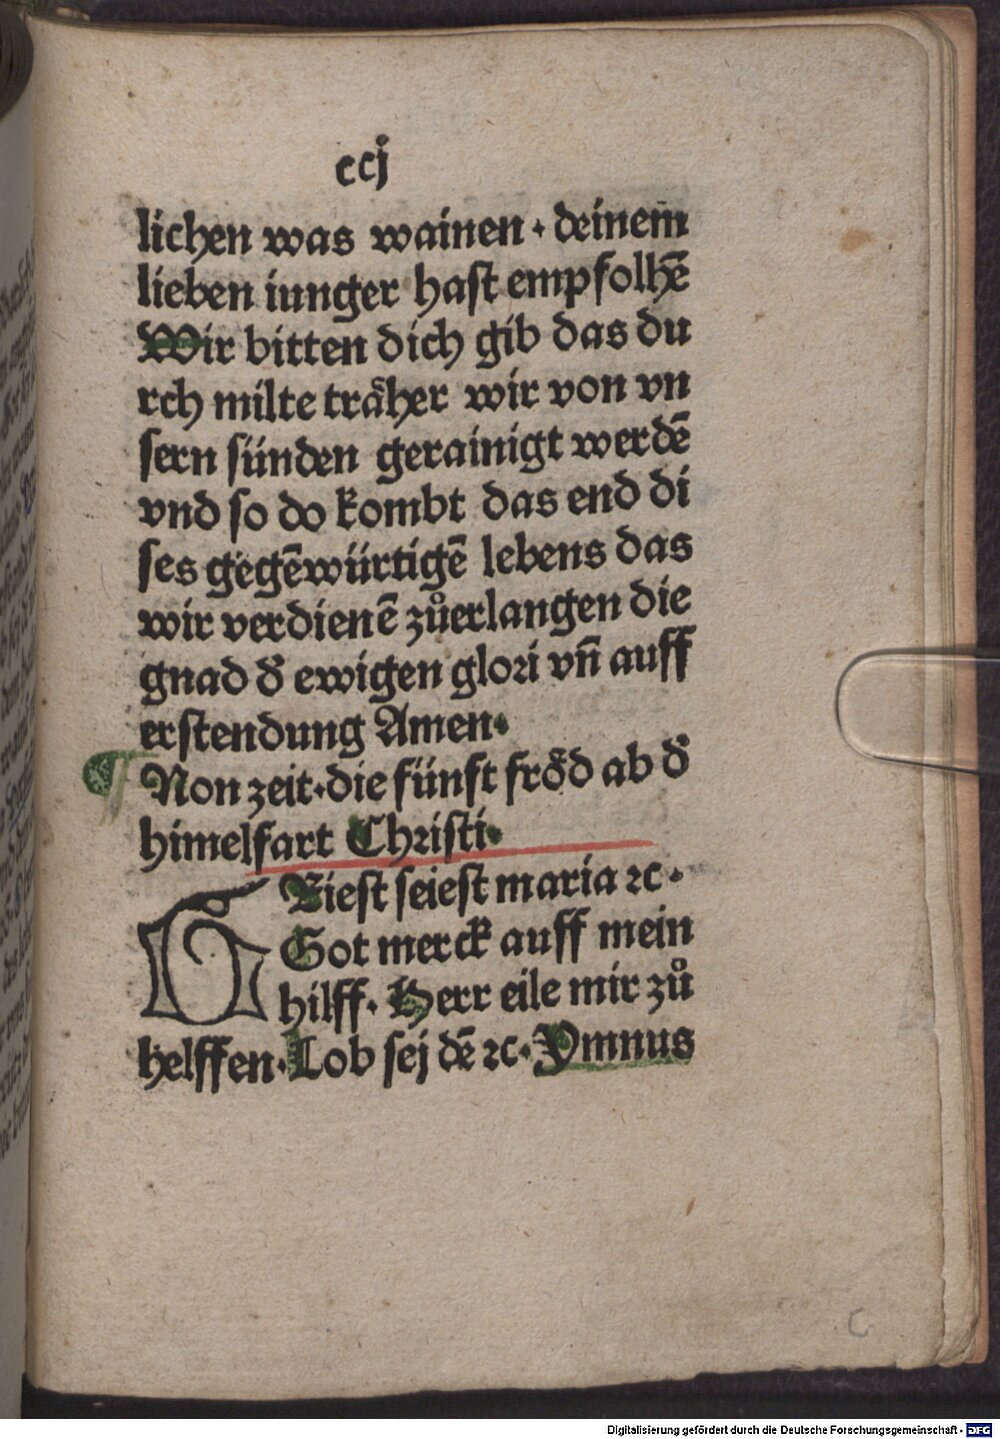 ccj
lichen was wainen · deinem
lieben iunger hast empfolhē
Wir bitten dich gib das du
rch milte träher wir von vn
sern sünden gerainigt werdē
vnd so do kombt das end di
ses gegēwürtigē lebens das
wir verdienē zůerlangen die
gnad d̄ ewigen glori vn̄ auff
erstendung Amen·
¶ Non zeit·die fünft fröd ab d̄
himelfart Christi·
GRiest seiest maria ⁊c·
Got merck auff mein
hilff· Herr eile mir zů
helffen·Lob sej dē ⁊c·Ymnus
C
Digitalisierung gefördert durch die Deutsche Forschungsgemeinschaft - DFG